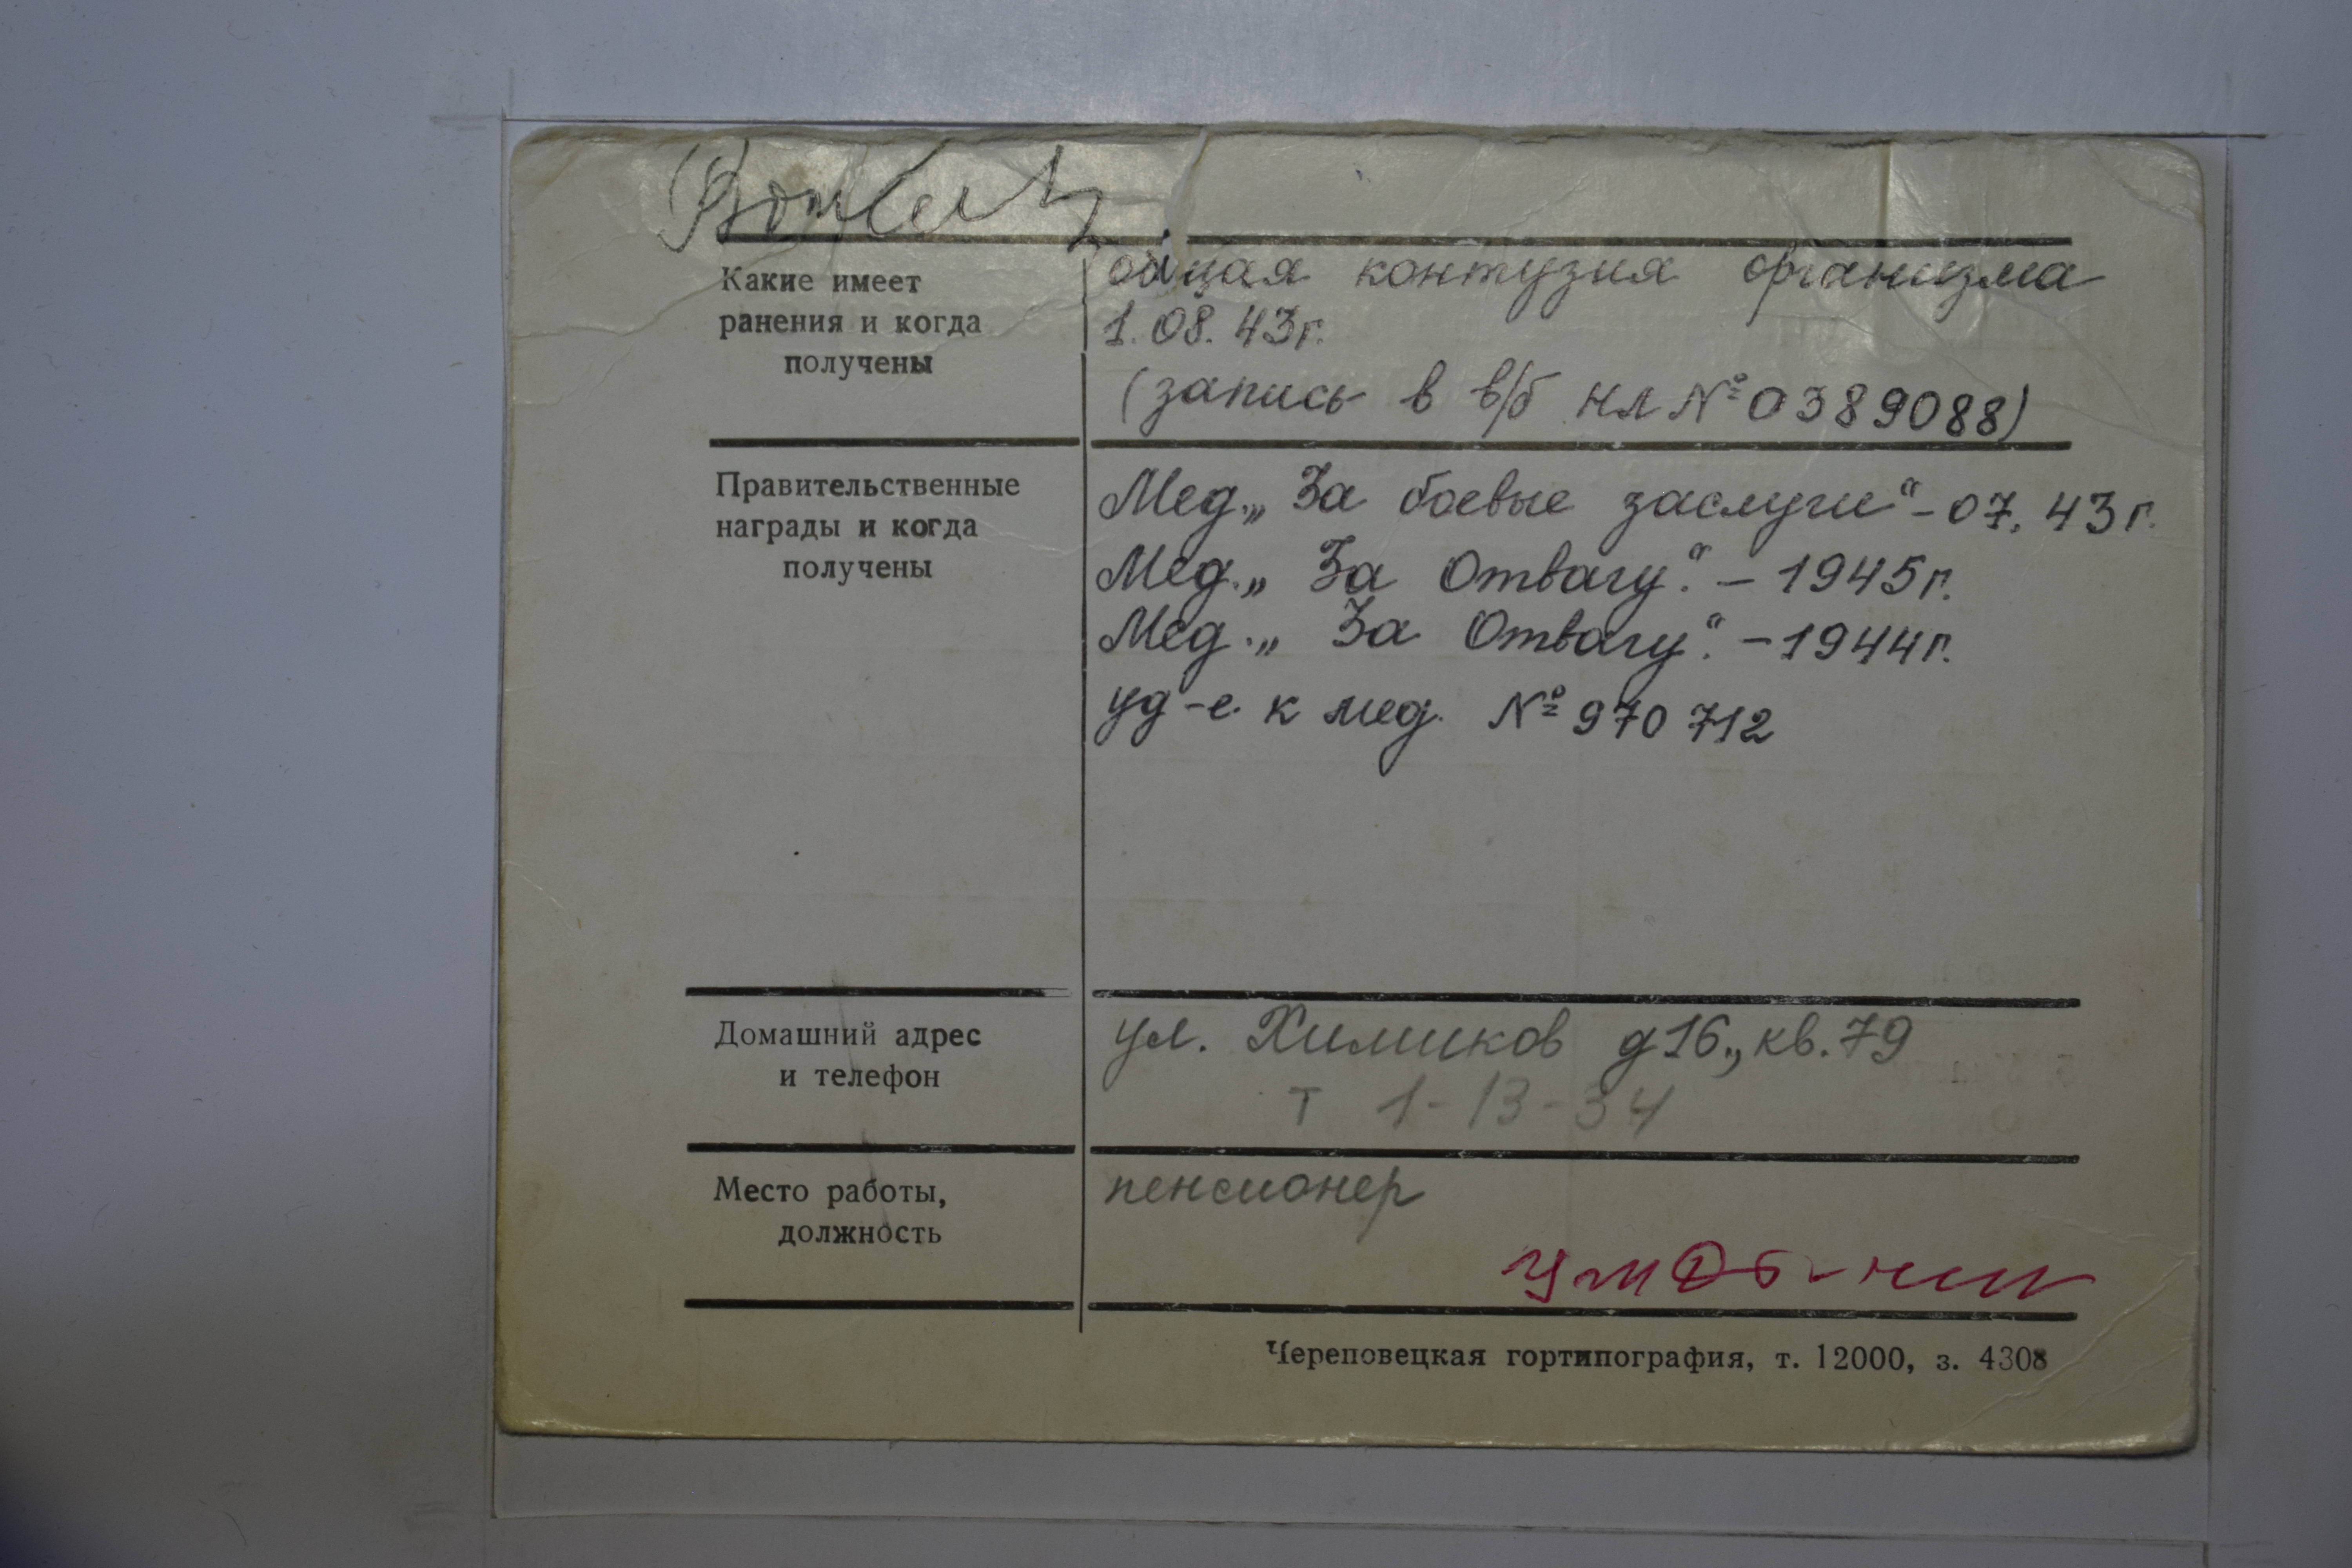 Какие имеет
ранения и когда
получены
общая контузия организма
1. 08. 43г.
(запись в в/б нл № 0389088)
Правительственные
награды и когда
получены
Мед. „За боевые заслуги“ - 07. 43 г.
Мед. „За Отвагу.“ - 1945 г.
Мед. „За Отвагу.“ - 1944 г.
уд-е к мед. № 970 712
Домашний адрес
и телефон
ул. Химиков д 16., кв. 79
т 1-13-34
Место работы,
должность
пенсионер
Череповецкая гортипография, т. 12000, з. 4308